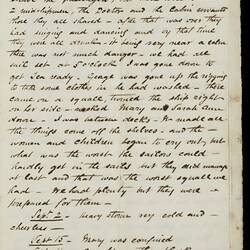 2 midshipmen, the Doctor and the Cabin servants
thro they all shared - after that was over they
had singing and dancing and by that time
they were all drunk - it being very near a calm
there was not much danger - we had all
sail set at 5 o'clock I was gone down to
get tea ready. George was gone up the rigging
to take some clothes in he had washed - there
came on a squall, turned the ship right
on her side - masted. Mary and Sarah Ann
done. I was between decks - It made all
the things come off the shelves - and the
women and children began to cry out, but
what was the worst the sailors could
hardly get in the sails but they did manage
at last and that was the worst squall we
had - We had plenty but they were
prepared for them -
Sept 2 - very stormy very cold and
cheerless -
Sept 15 - Mary was confined